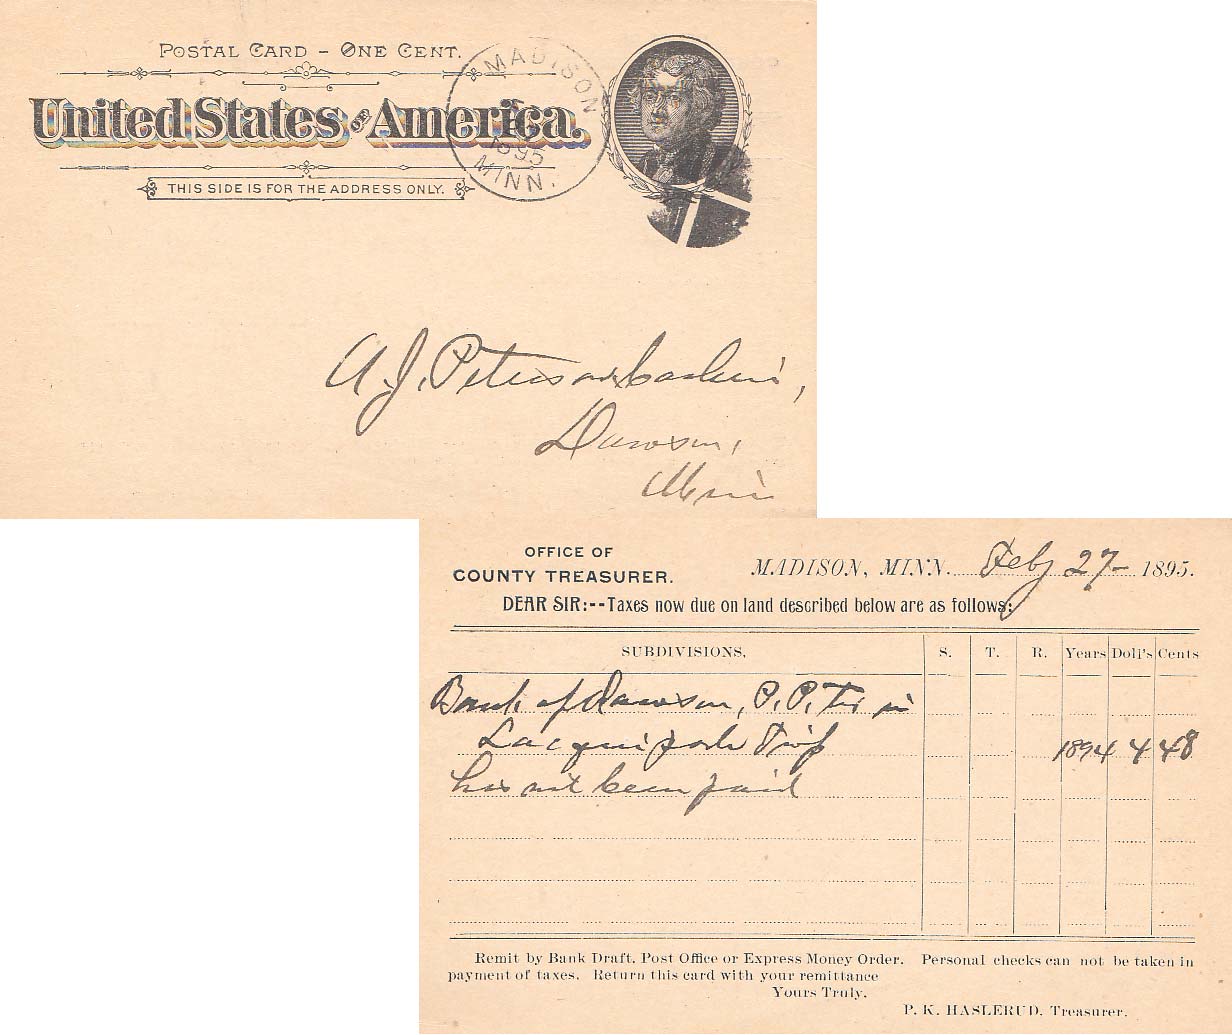 POSTAL CARD - ONE CENT.
United States OF America.
THIS SIDE IS FOR THE ADDRESS ONLY.
MADISON
1895
MINN.
A. J. Peterson Cashier,
Dawson,
Minn
OFFICE OF
COUNTY TREASURER.
MADISON, MINN. Feby 27- 1895.
DEAR SIR:--Taxes now due on land described below are as follows:
SUBDIVISIONS, S. T. R. Years Doll's Cents
Bank of Dawson, P. P. Tax in
Lac qui parle Twp 1894 4 48
has not been paid
Remit by Bank Draft, Post Office or Express Money Order. Personal checks can not be taken in
payment of taxes. Return this card with your remittance
Yours Truly,
P. K. HASLERUD, Treasurer.